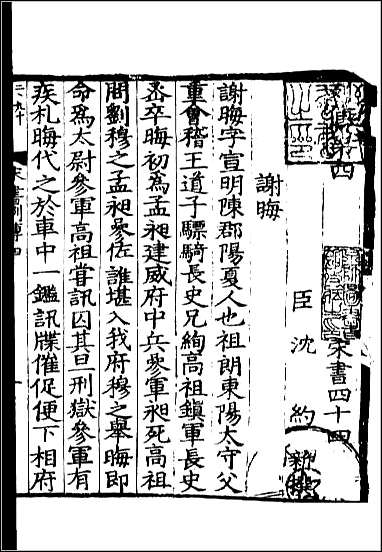 列傳第四 宋書四十四
臣沈約 新撰
謝晦
謝晦字宣明陳郡陽夏人也祖朗東陽太守父
重會稽王道子驃騎長史兄絢高祖鎮軍長史
蚤卒晦初為孟昶建威府中兵參軍昶死高祖
問劉穆之孟昶參佐誰堪入我府穆之舉晦即
命為太尉參軍高祖嘗訊囚其旦刑獄參軍有
疾札晦代之於車中一鑑訊牒催促便下相府
宋書列傳四